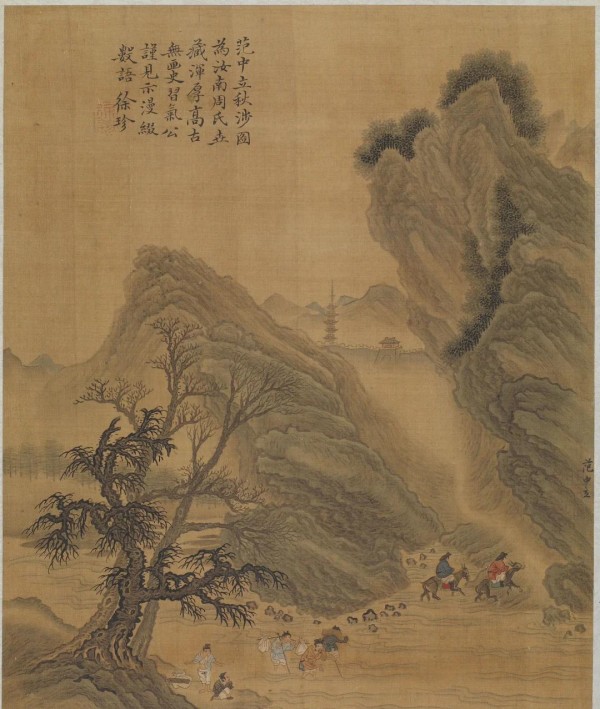 范中立秋涉圖
為汝南周氏世
藏渾厚高古
無画史習氣公
謹見示漫綴
數語 徐珍
范中立